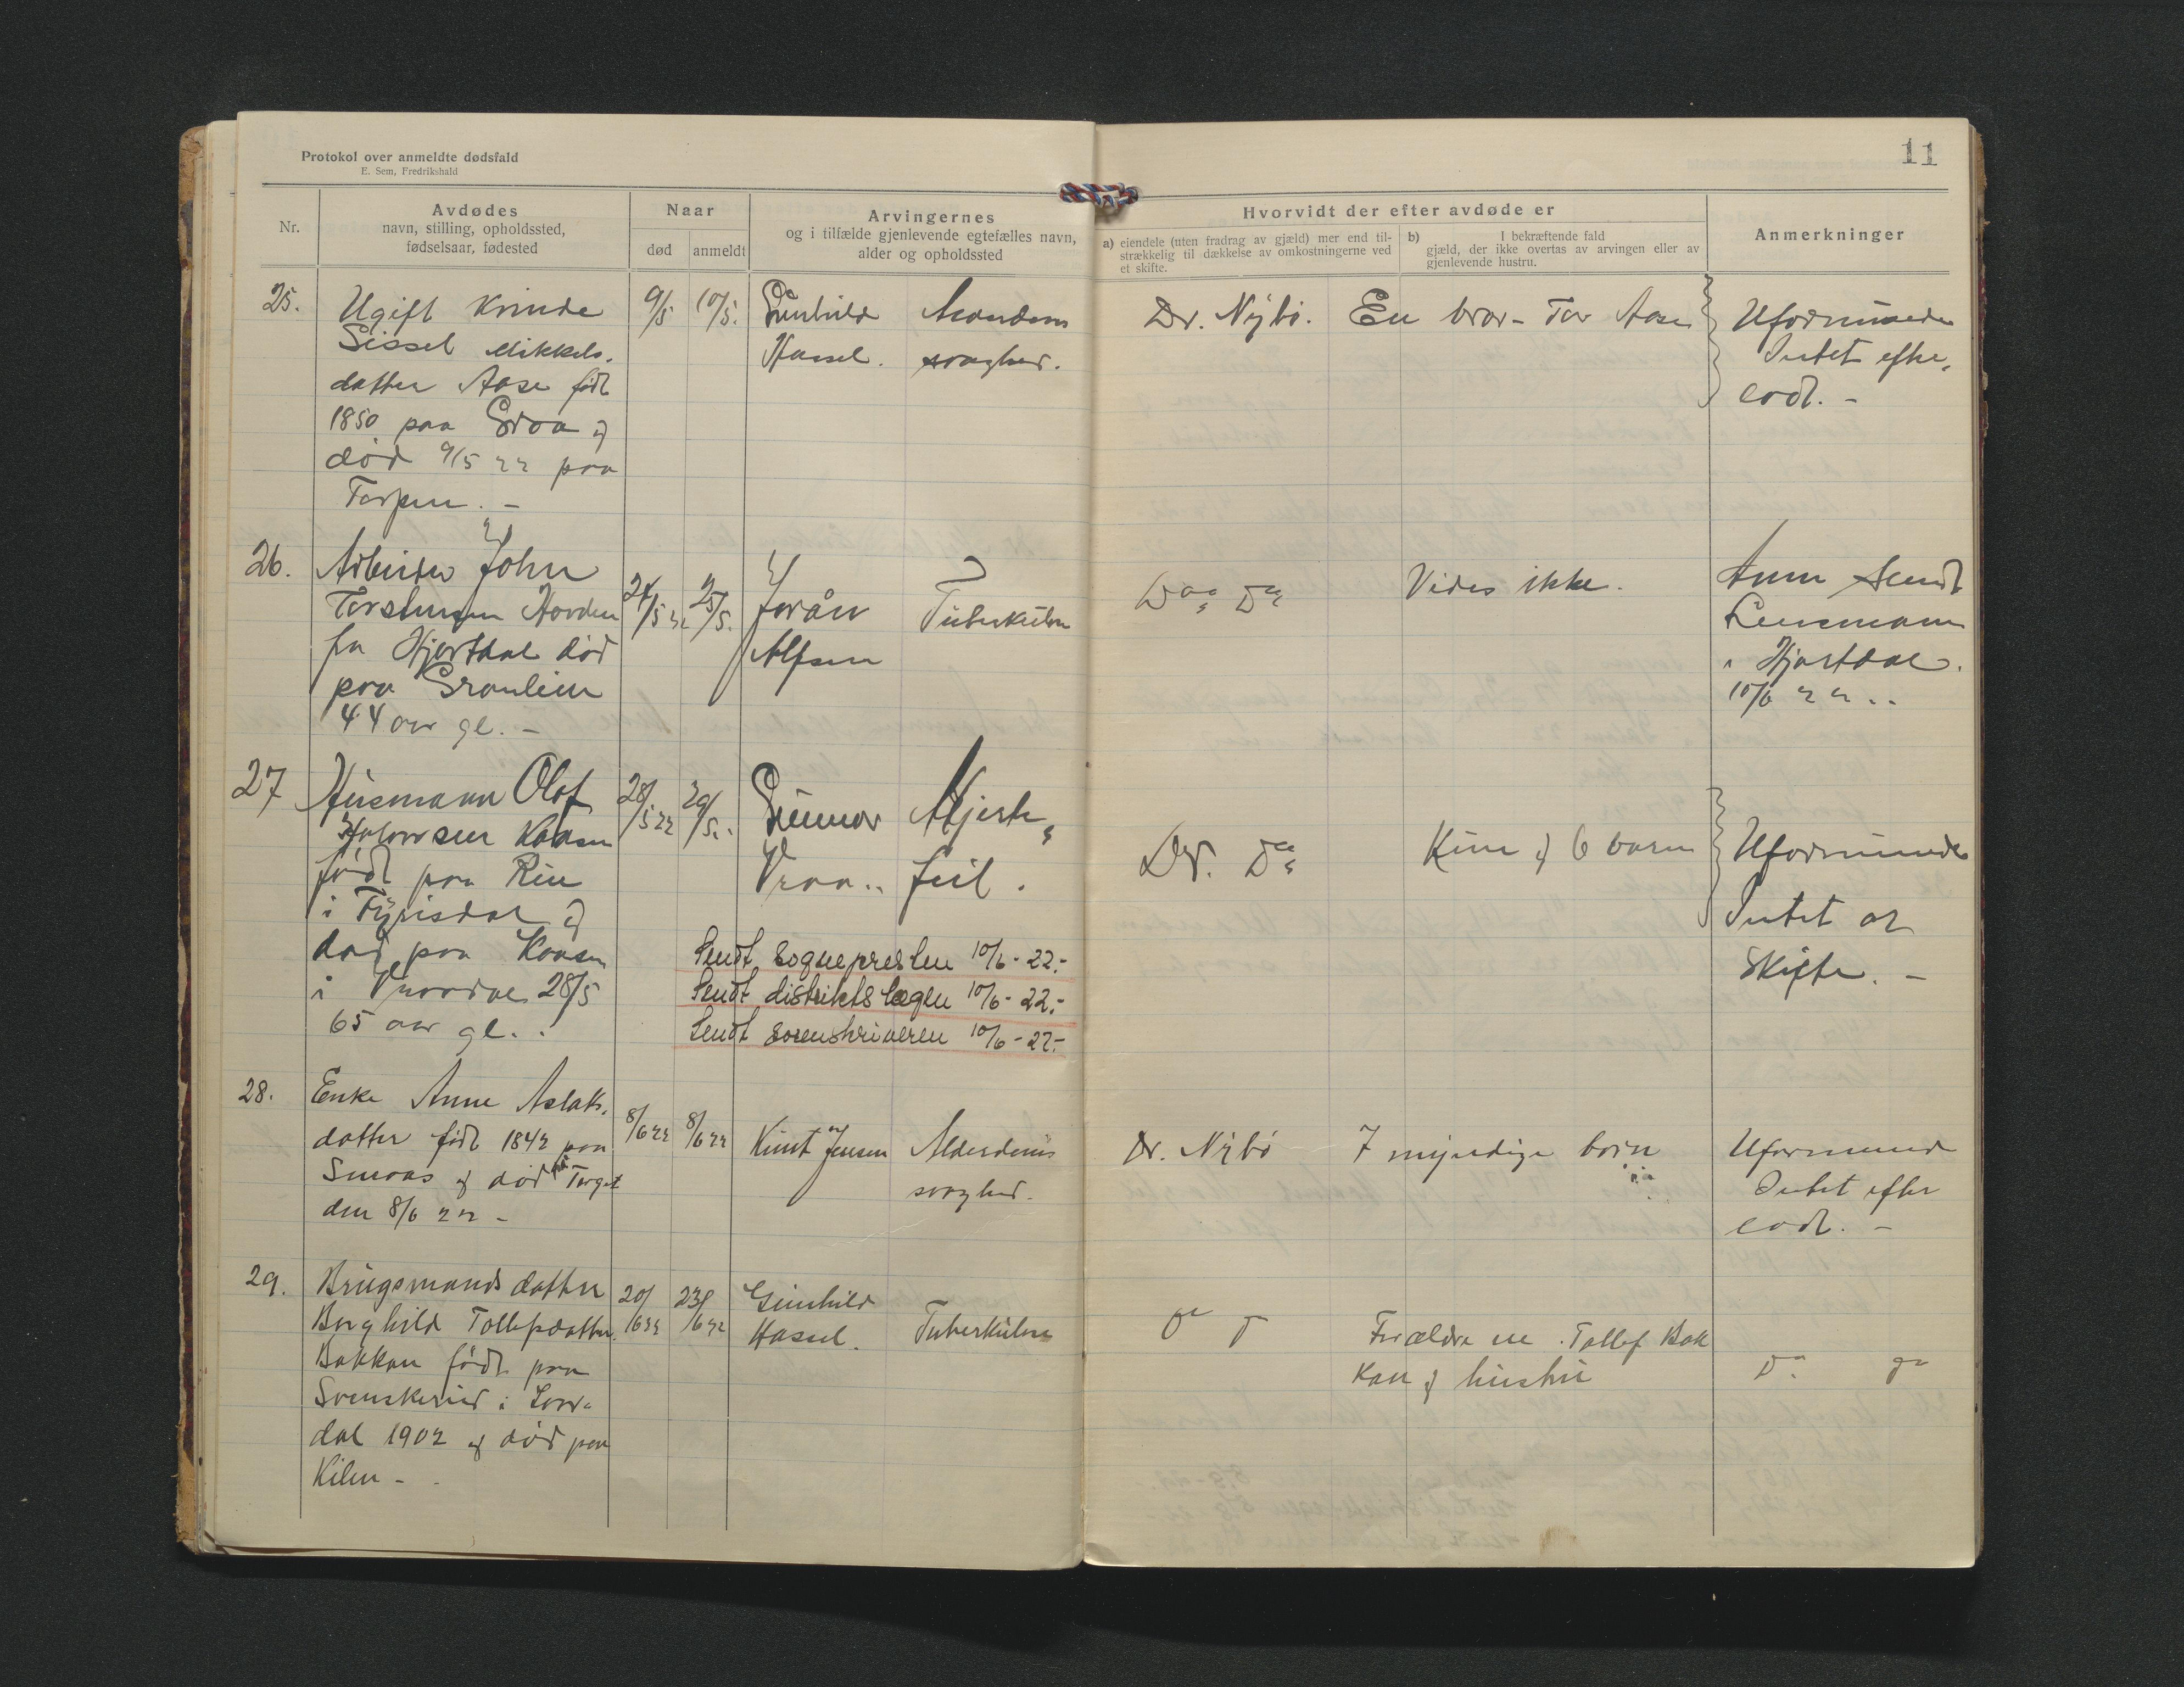 Protokol over anmeldte dødsfald
E. Sem, Fredrikshald
11
Nr.
Avdødes
navn, stilling, opholdssted,
fødselsaar, fødested
Naar
død
anmeldt
Arvingernes
og i tilfælde gjenlevende egtefælles navn,
alder og opholdssted
Hvorvidt der efter avdøde er
a) eiendele (uten fradrag av gjæld) mer end til-
strækkelig til dækkelse av omkostningerne ved
et skifte.
b) I bekræftende fald
gjæld, der ikke overtas av arvingen eller av
gjenlevende hustru.
Anmerkninger
25.
Ugift Kvinde
Sissel Mikkels-
datter Aase født
1850 paa Groa og
død 9/5 22 paa
Torpen. -
9/5
10/5.
Gunhild
Hassel.
svaghed.
Dr. Nybø.
En bror - Tor Aase
Uformuende
Intet efter-
ladt. -
26.
Arbeider John
Torsteinsen Hovden
fra Hjartdal død
paa Granlien
44 aar gl. -
24/5 22
25/5.
Jorån
Alfsen
Tuberkulose
Do Do
Vides ikke.
Anm sendt
Lensmann
i Hjartdal.
10/6 22..
27
Husmann Olaf
Halvorsen Kaasen
født paa Rui
i Fyrisdal og
død paa Kaasen
i Vraadal 28/5
65 aar gl. .
28/5 22
29/5.
Gunnar
Vraa..
Hjerte-
feil.
Dr. Do
Kone og 6 barn
Uformuende
Intet at
Skifte. -
Sendt sognepresten 10/6-22.-
Sendt distriktslægen 10/6-22.-
Sendt sorenskriveren 10/6-22.-
28.
Enke Anne Aslaks-
datter født 1842 paa
og død paa
den 8/6 22 -
8/6 22
8/6 22
Knut Jensen
Alderdoms
svaghed.
Dr. Nybø
7 myndige børn
Uformuende
Intet efter
ladt. -
29.
Brugsmands datter
Borghild Tollefsdatter
Bakkan født paa
Svenskerud i Laar-
dal 1902 og død paa
Kilen -
20/6 22
23/6 22
Gunhild
Hassel.
Tuberkulose
Do Do
Forældrene. Tollef Bak
kan og hustru
Do Do